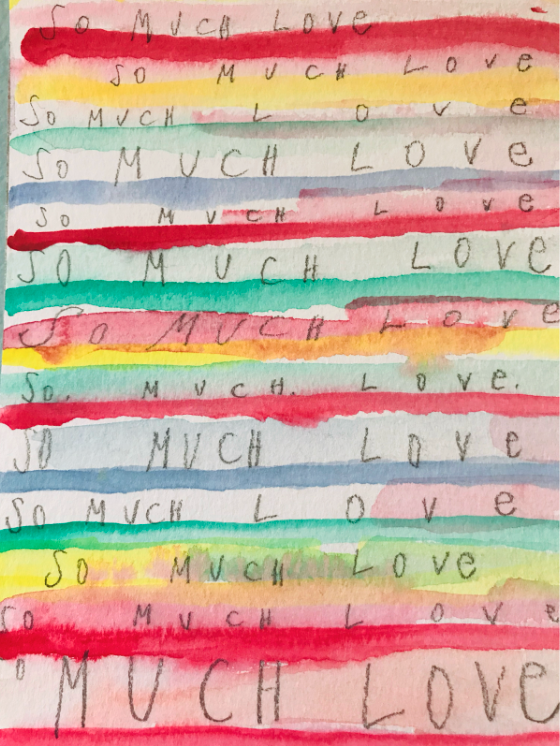 SO MUCH LOVe
SO MUCH LOVe
SO MUCH LOVe
SO MUCH LOVe
SO MUCH LOVe
SO MUCH LOVe
SO MUCH LOVe
So. MUCH. LOVe.
SO MUCH LOVe
SO MUCH LOVe
SO MUCH LOVe
SO MUCH LOVe
O MUCH LOVe